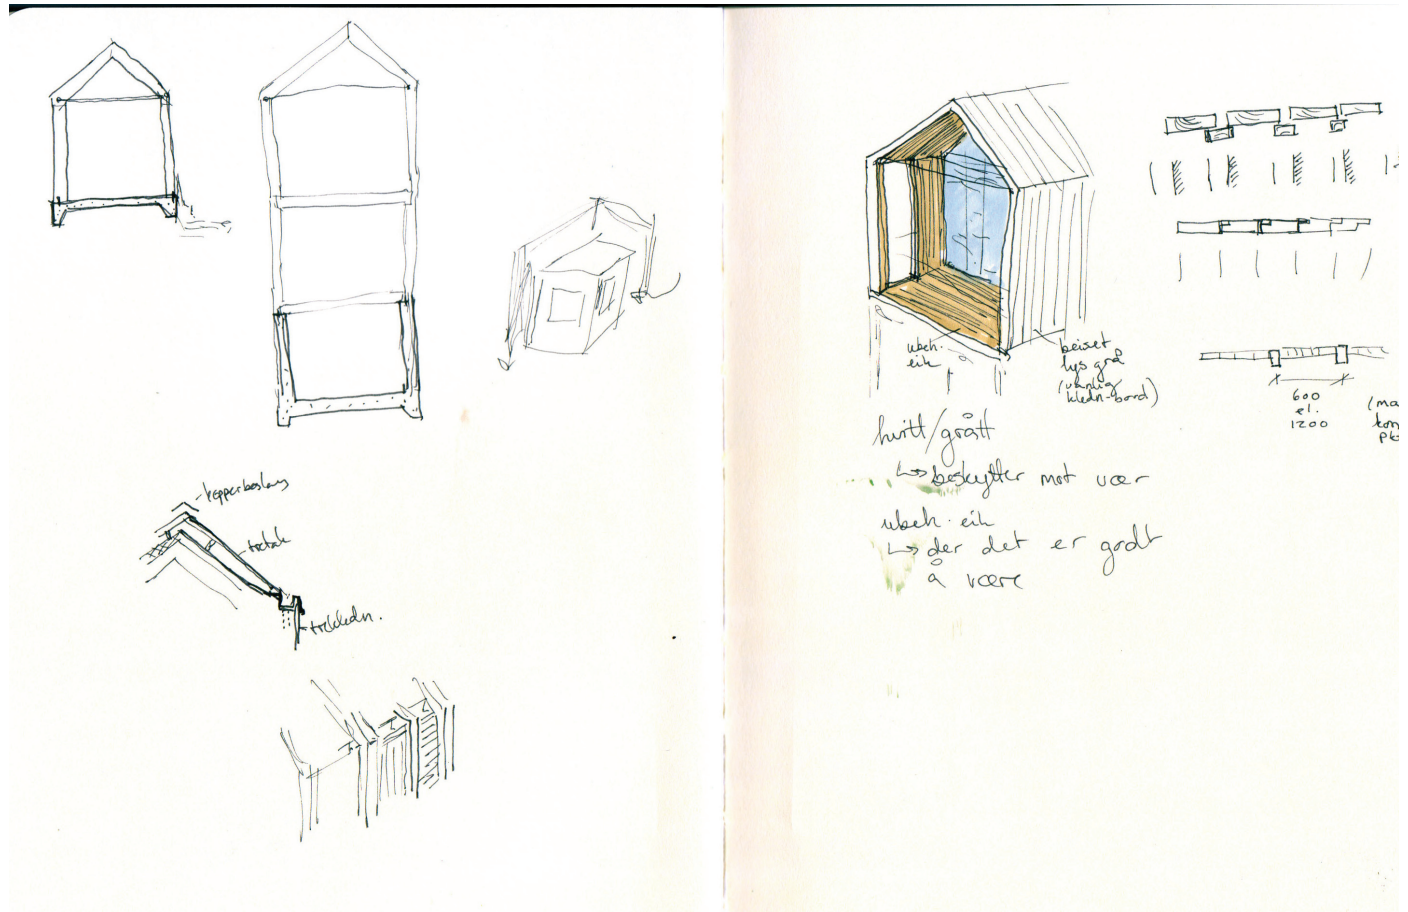 kopperbeslag
tretak
trekledn.
ubeh.
eik
beiset
lys grå
(vanlig
kledn-bord)
600
el.
1200
(ma
kon
pk
hvitt/grått
↳ beskytter mot vær
ubeh. eik
↳ der det er godt
å være